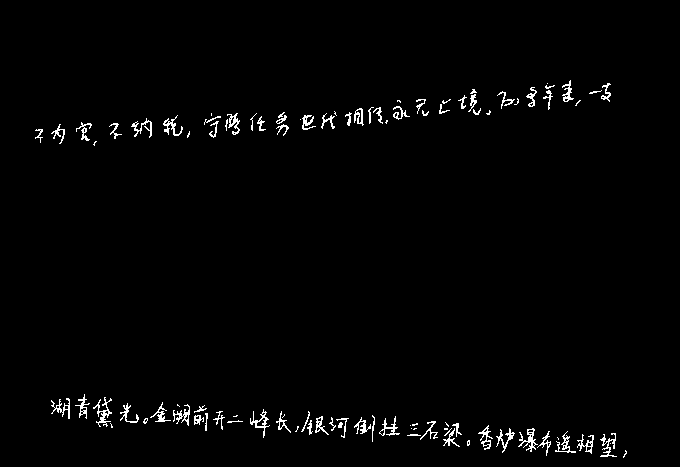 不为官,不纳税,守陵任务世代相传,永无止境。700多年来,一支
湖青黛光。金阙前开二峰长,银河倒挂三石梁。香炉瀑布遥相望,